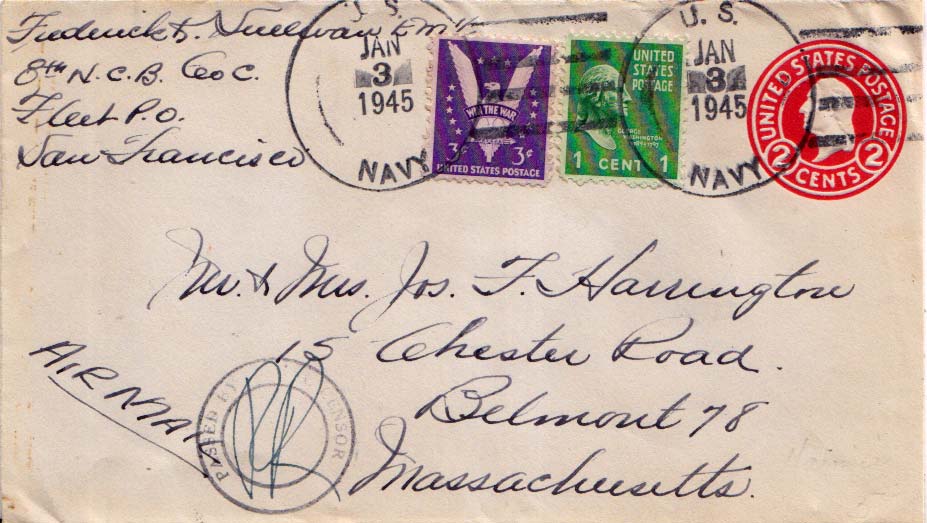 Frederick B. Sullivan EM 1/c
8th N.C.B. Co C.
Fleet P.O.
San Francisco
U.S.
JAN
3
1945
NAVY
WIN THE WAR
3¢ 3¢
UNITED STATES POSTAGE
UNITED
STATES
POSTAGE
GEORGE
WASHINGTON
1789-1797
1 CENT 1
U.S.
JAN
3
1945
NAVY
UNITED STATES POSTAGE
2 CENTS 2
Mr. & Mrs. Jos. F. Harrington
15 Chester Road.
Belmont 78
Massachusetts.
AIR MAIL
PASSED BY CENSOR